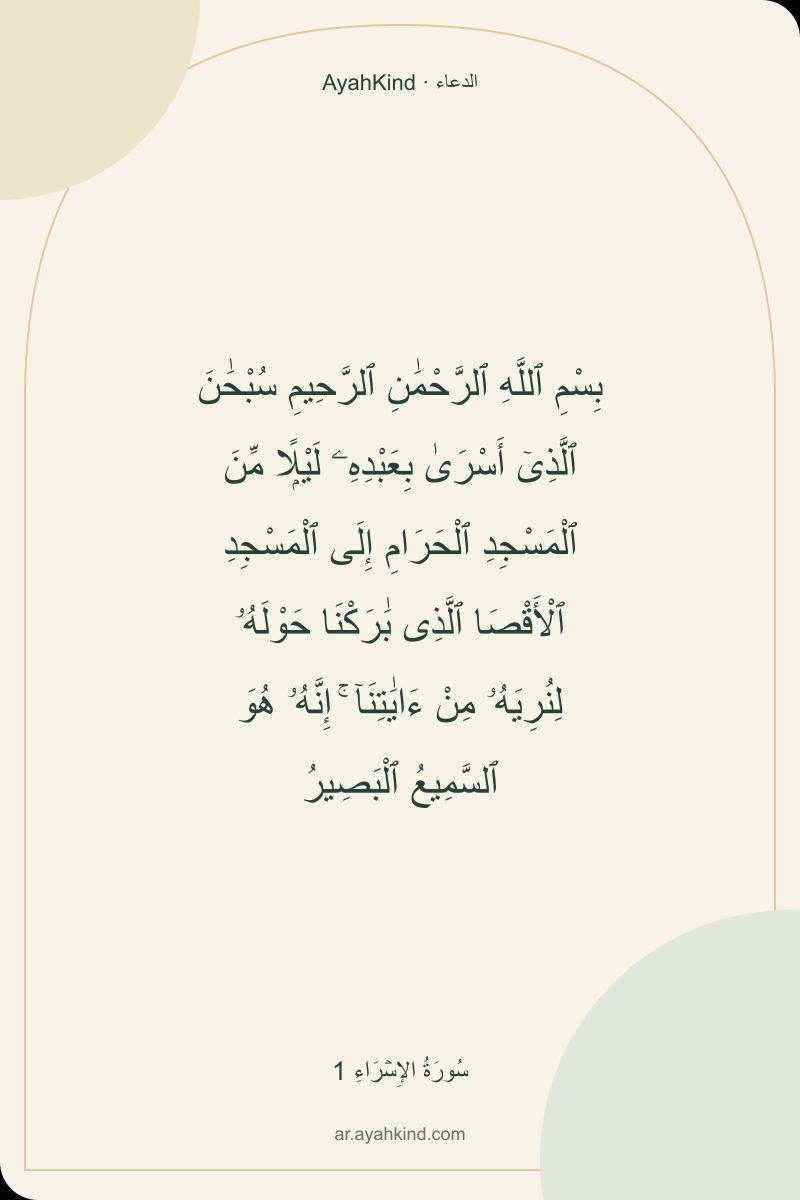 AyahKind · الدعاء
بِسْمِ ٱللَّهِ ٱلرَّحْمَٰنِ ٱلرَّحِيمِ سُبْحَٰنَ
ٱلَّذِىٓ أَسْرَىٰ بِعَبْدِهِۦ لَيْلًۭا مِّنَ
ٱلْمَسْجِدِ ٱلْحَرَامِ إِلَى ٱلْمَسْجِدِ
ٱلْأَقْصَا ٱلَّذِى بَٰرَكْنَا حَوْلَهُۥ
لِنُرِيَهُۥ مِنْ ءَايَٰتِنَآ ۚ إِنَّهُۥ هُوَ
ٱلسَّمِيعُ ٱلْبَصِيرُ
سُورَةُ الإِسۡرَاءِ 1
ar.ayahkind.com